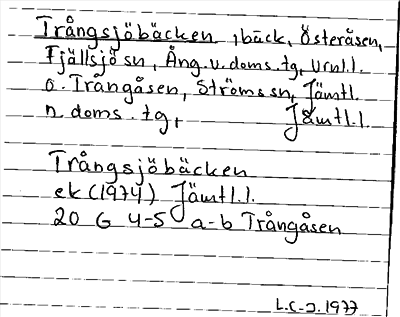 Trångsjöbäcken, bäck, Österåsen,
Fjällsjö sn, Ång. v. doms. tg, Vrnl.l.
o. Trångåsen, Ströms sn, Jämtl.
n. doms. tg, Jämtl.l.
Trångsjöbäcken
ek (1974) Jämtl.l.
20 G 4-5 a-b Trångåsen
L.C-J. 1977